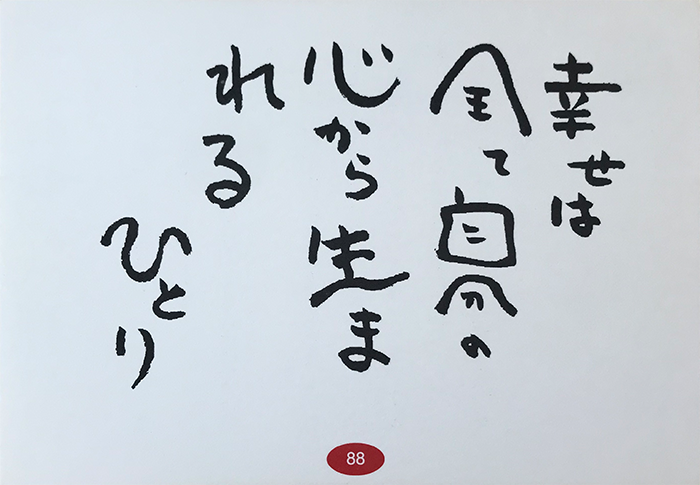 幸せは
全て自分の
心から生ま
れる
ひとり
88